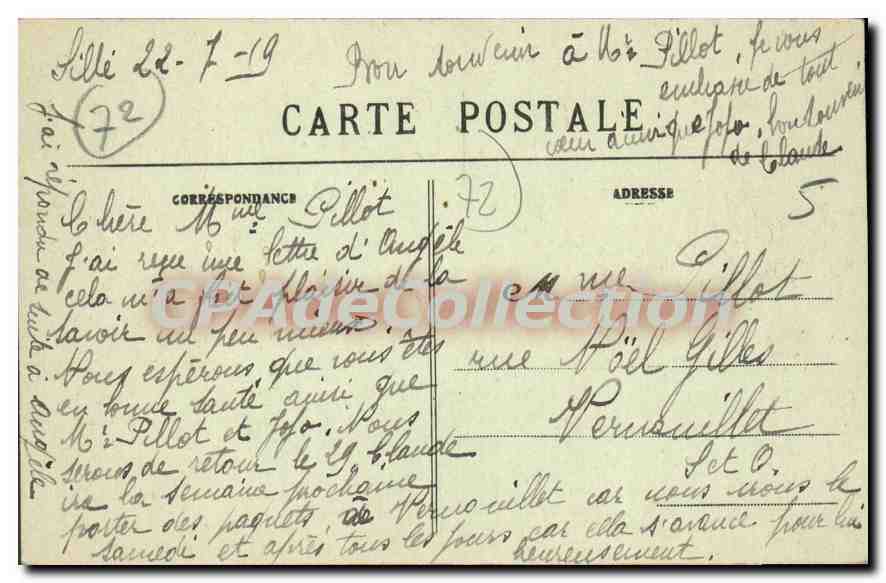 Sillé 22-7-19
Bon souvenir à Mr Pillot, je vous
embrasse de tout
cœur ainsi que Jojo, bon souvenir
de Claude
72
CARTE POSTALE
CORRESPONDANCE
72
ADRESSE
5
Chère Mme Pillot
J'ai reçu une lettre d'Angèle
cela m'a fait plaisir de la
savoir un peu mieux.
Nous espérons que vous êtes
en bonne santé ainsi que
Mr Pillot et Jojo. Nous
serons de retour le 29. Claude
ira la semaine prochaine
porter des paquets à Vernouillet car nous irons le
samedi et après tous les jours car cela s'avance pour lui
heureusement.
J'ai répondu de suite à Angèle
Mme Pillot
rue Noël Gilles
Vernouillet
S et O.
CPAdeCollection